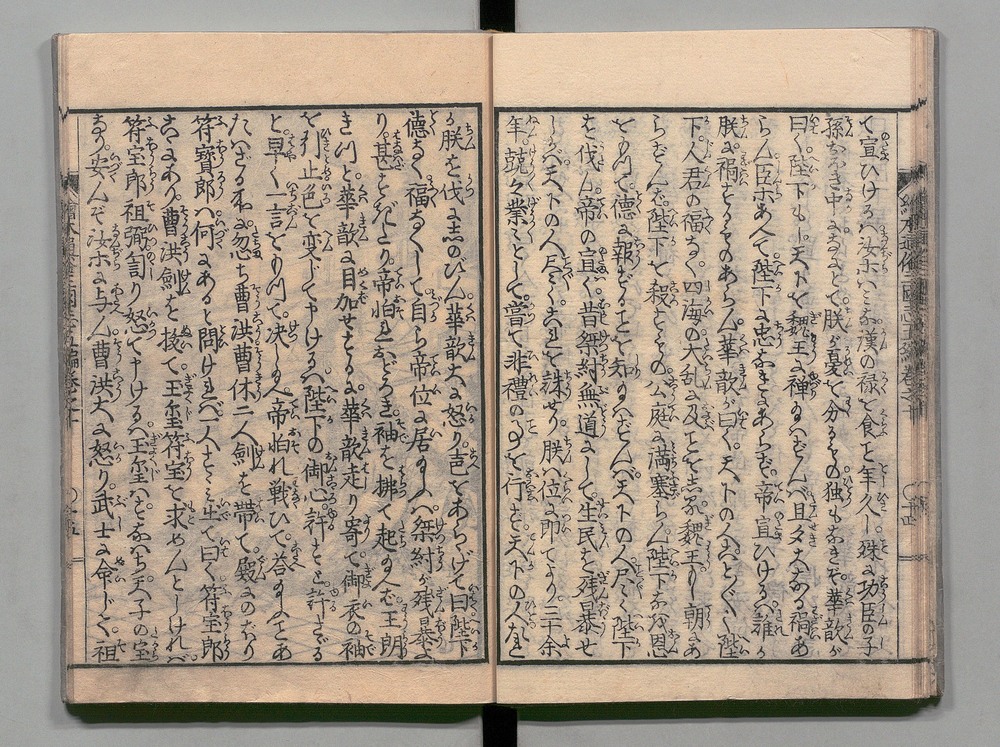 て宣ひけるハ汝ホいミな漢の禄を食こと年久し殊に功臣の子
孫なき中にあるとて朕が憂を分るもの独もなきぞ華歆が
曰く陛下もし天下を魏王に禅り給ハずんバ旦夕大なる禍あ
らん臣ホあへて陛下に忠なきにあらず帝宣ひけるハ誰か
朕に禍をするものあらん華歆が曰く天下の人ことごとく陛
下人君の福なく四海の大乱に及ことを志る魏王もし朝にあ
らずんバ陛下を殺するもの公庭に満塞らん陛下なを恩
をもつて徳に報ずることを知給ハずんバ天下の人尽く陛下
を伐ん帝の宣く昔桀紂無道にして生民を残暴せ
しかバ天下の人尽くこれを誅せり朕ハ位に即てより三十余
年兢々業々として嘗て非禮の事を行ず天下の人なに
か朕を伐に志のびん華歆大に怒り声をあらげて曰陛下
徳なく福なくして自ら帝位に居給ふハ桀紂が残暴より
り甚だし帝怕れおどろき袖を拂て起給へバ王朗
きつと華歆に目加せするに華歆走り寄て御衣の袖
を引止色を変じて申けるハ陛下の御心許とも許さざる
と早く一言をもつて決し給へ帝怕れ戦ひて答給ふことあ
たハざる処に忽ち曹洪曹休二人剣を帯て殿にのぼり
符寶郎ハ何にあると問けれバ一人すゝミ出て曰く符宝郎
こゝにあり曹洪剣を抜て王璽符宝を求めんとしけれバ
符宝郎祖弼訇り怒て申けるハ玉璽ハすなハち天子の宝
なり安んぞ汝ホに与ん曹洪大に怒り武士に命じて祖